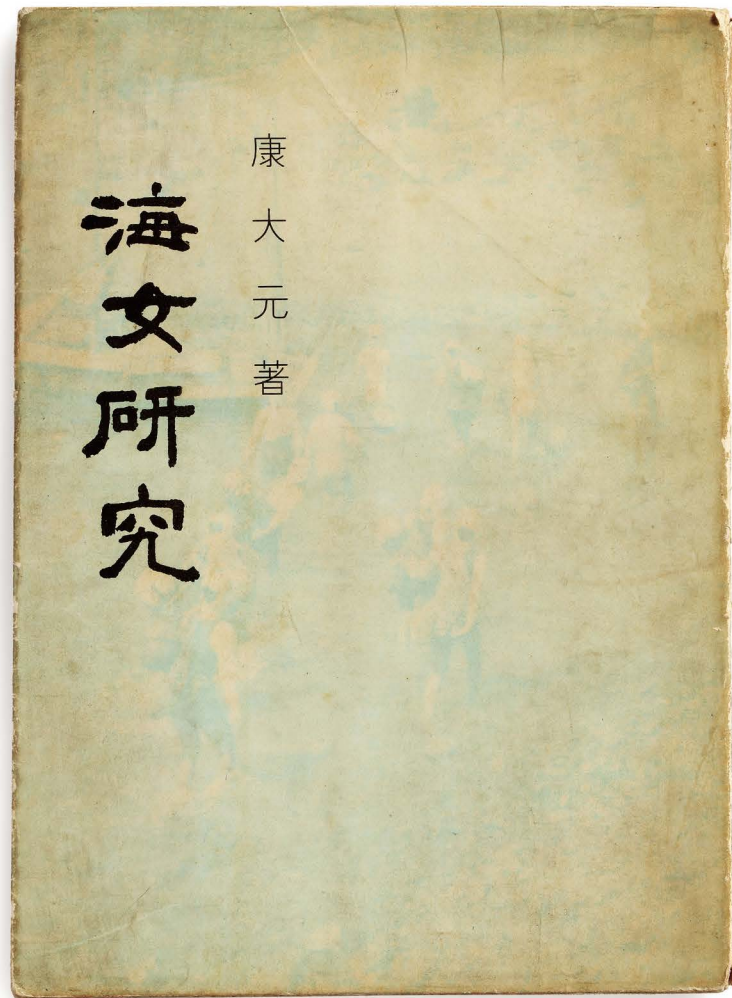 康大元著
海女研究